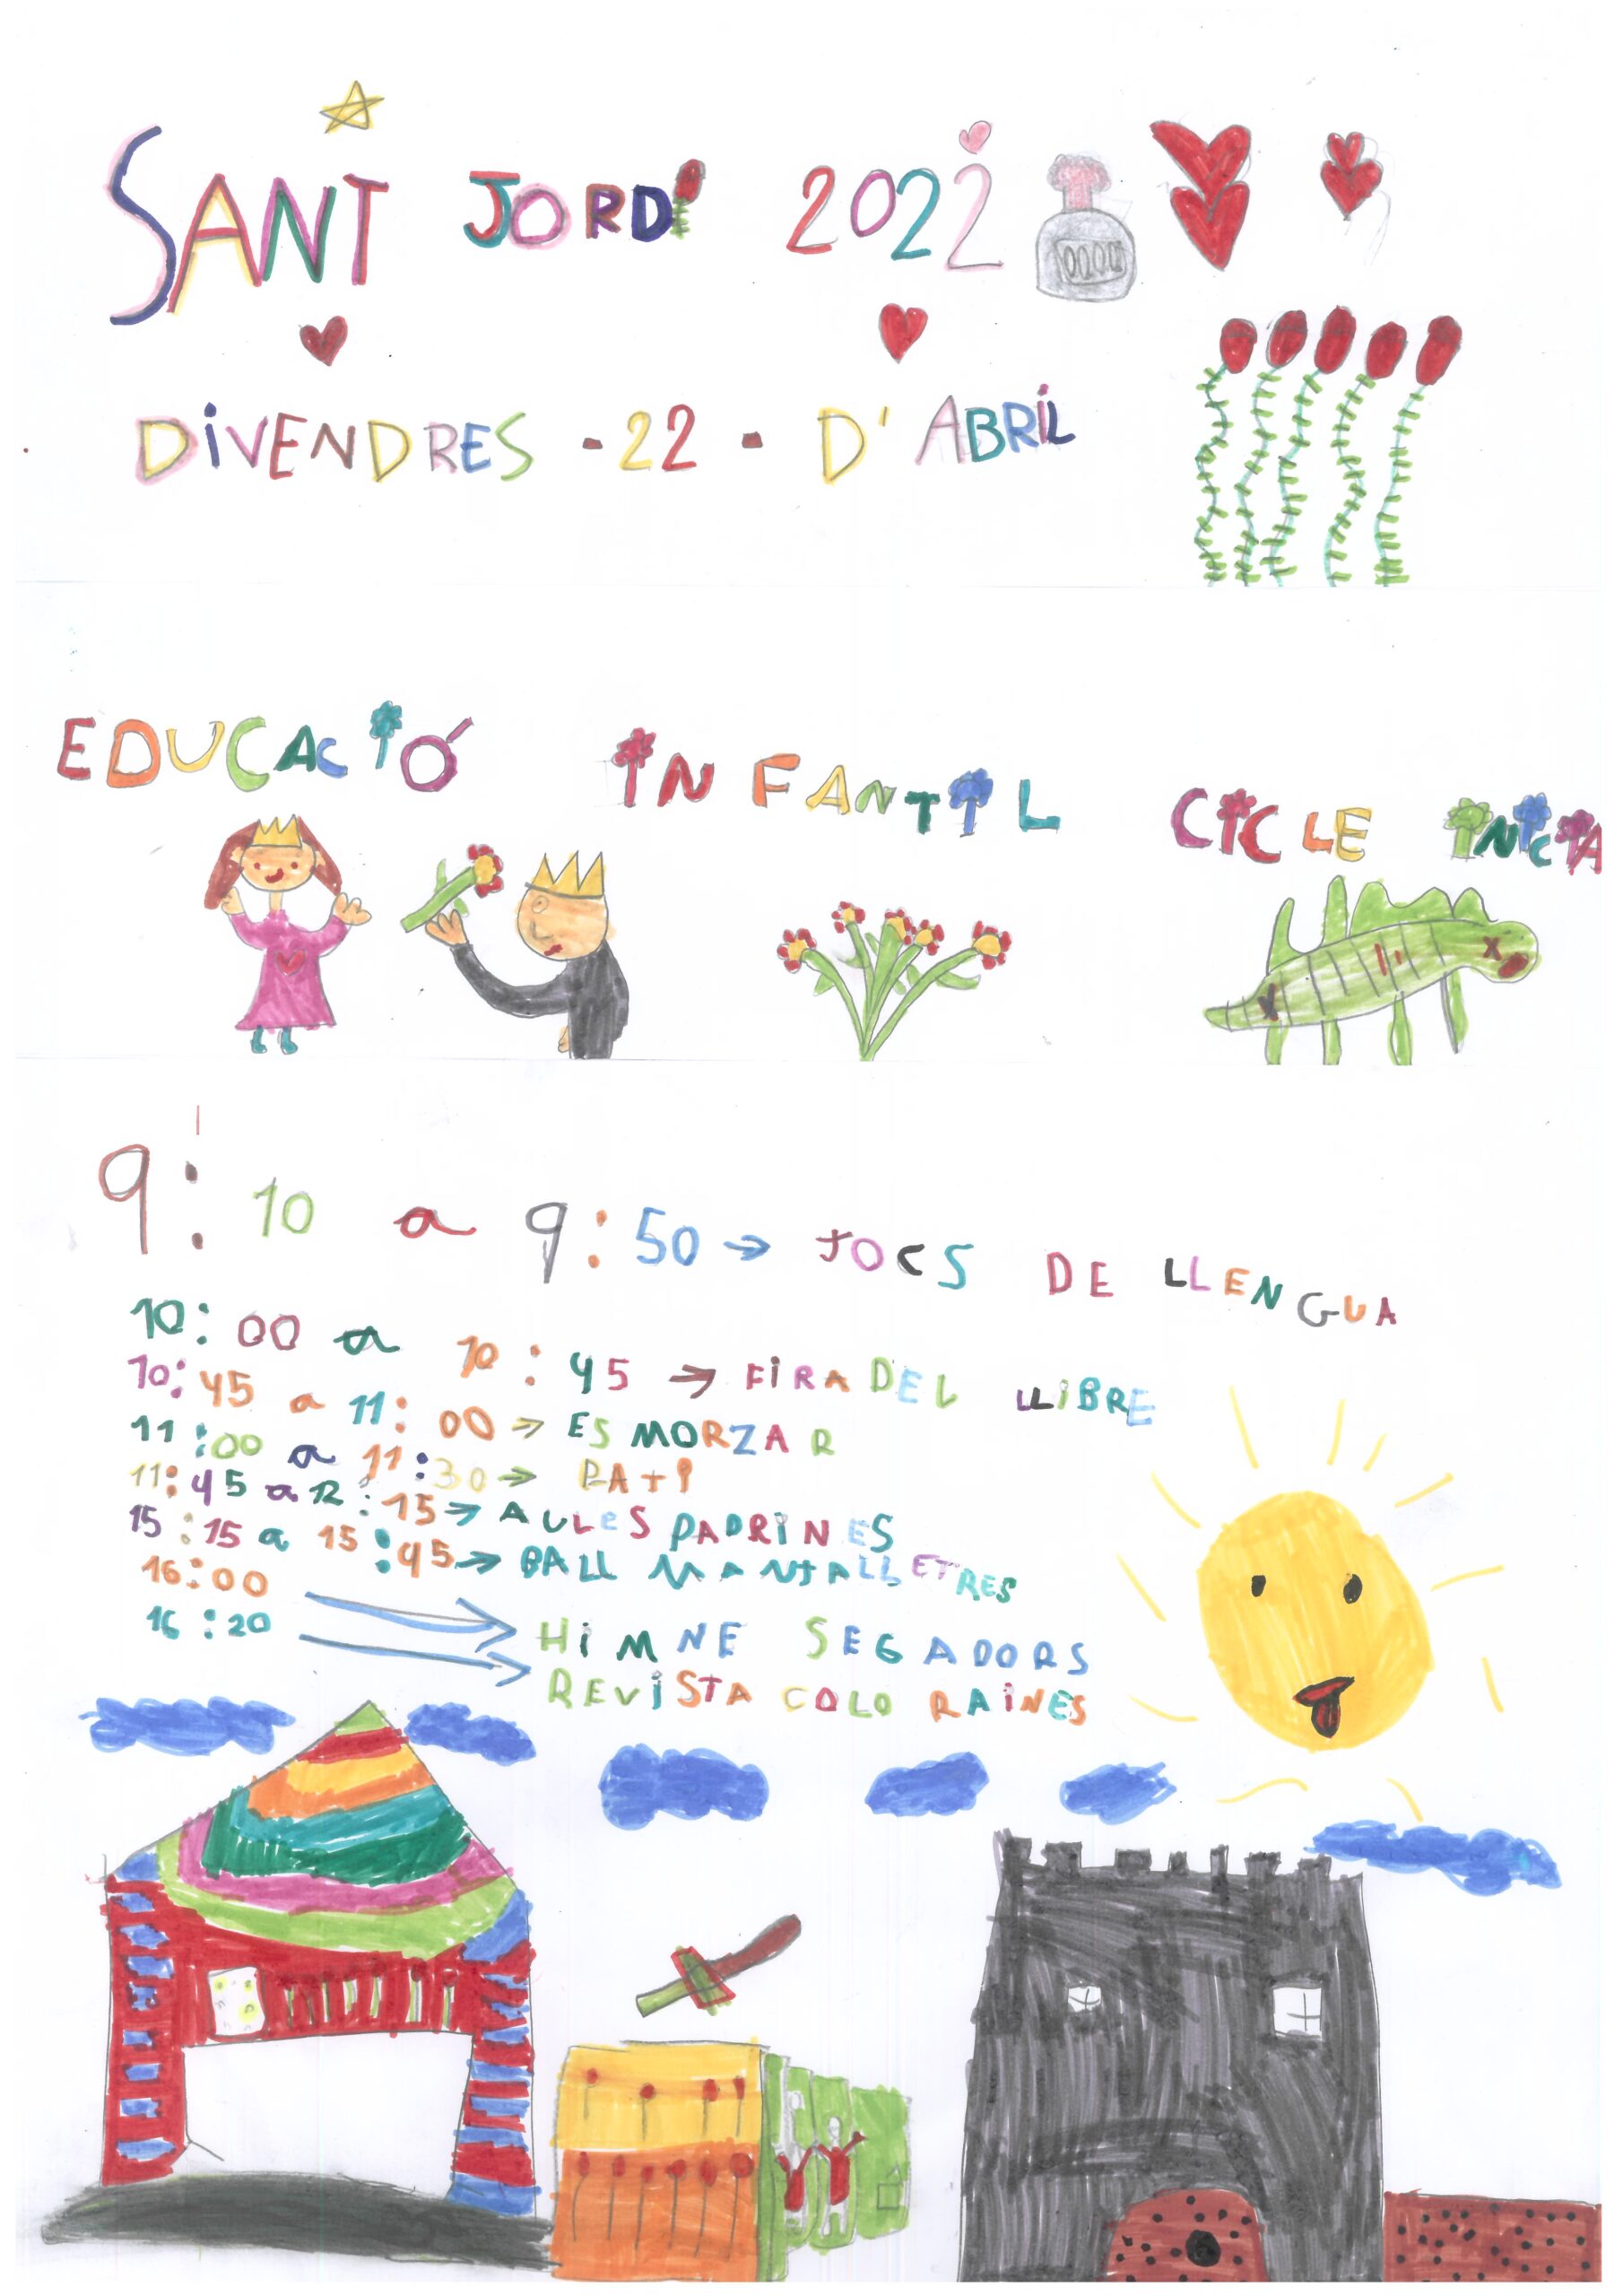 SANT JORDI 2022
DIVENDRES - 22 - D'ABRIL
EDUCACIÓ INFANTIL CICLE INICIA
9:10 a 9:50 → JOCS DE LLENGUA
10:00 a 10:45 → FIRA DEL LLIBRE
10:45 a 11:00 → ESMORZAR
11:00 a 11:30 → PATI
11:45 a 12:15 → AULES PADRINES
15:15 a 15:45 → BALL MANJALLETRES
16:00 → HIMNE SEGADORS
16:20 → REVISTA COLORAINES